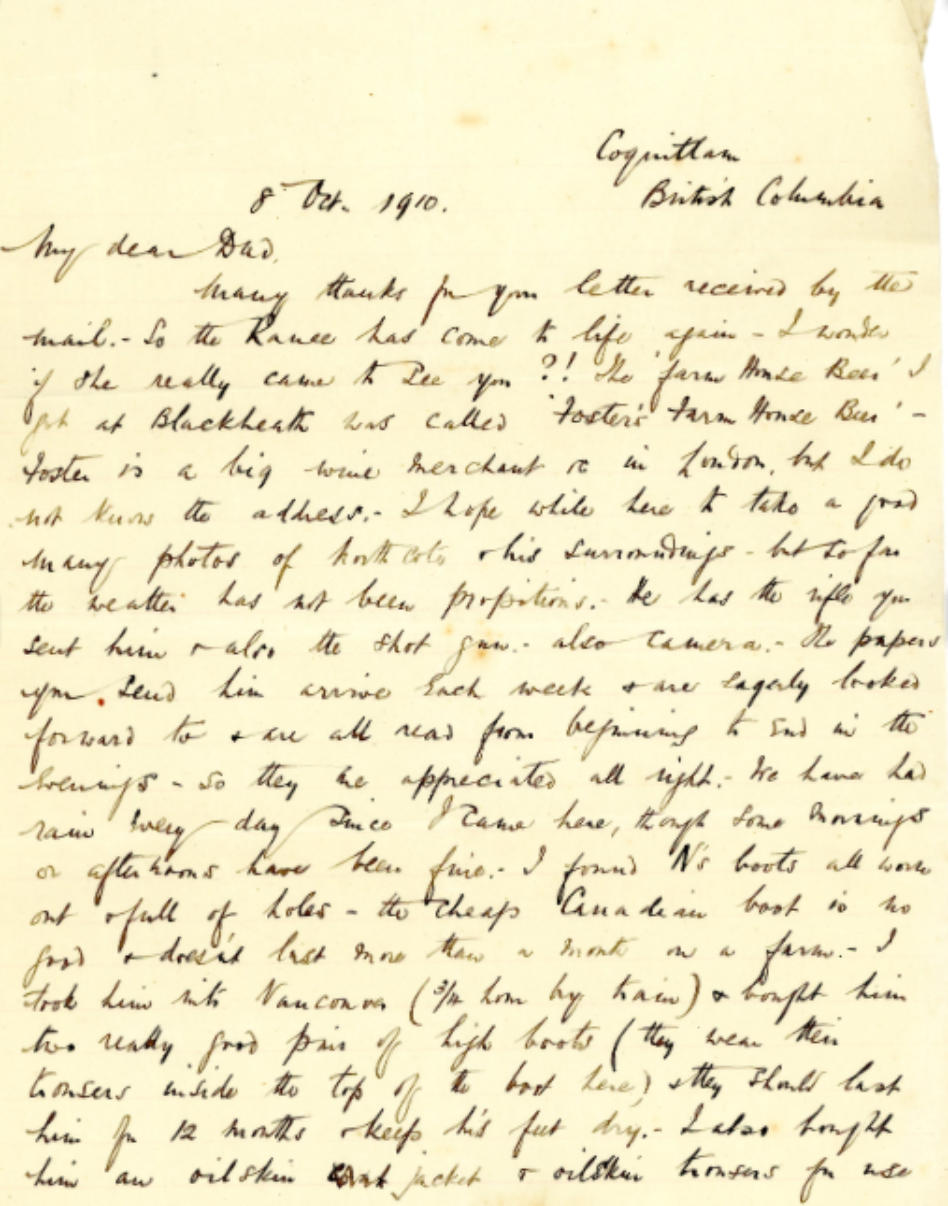 Coquittam
8 Oct. 1910. British Columbia
My dear Dad,
Many thanks for your letter received by the
mail.- So the Ranee has come to life again - I wonder
if she really came to see you ?! The 'farm House Beer' I
got at Blackheath was called 'Foster's Farm House Beer' -
Foster is a big wine merchant &c in London, but I do
not know the address.- I hope while here to take a good
many photos of Northcote & his surroundings - but so far
the weather has not been propitious.- He has the rifle you
sent him & also the shot gun.- also camera.- The papers
you send him arrive each week & are eagerly looked
forward to & are all read from beginning to end in the
evenings - so they are appreciated all right.- We have had
rain every day since I came here, though some mornings
or afternoons have been fine.- I found N's boots all worn
out & full of holes - the cheap Canadian boot is no
good & doesn't last more than a month on a farm.- I
took him into Vancouver (3/4 hour by train) & bought him
two really good pair of high boots (they wear their
trousers inside the top of the boot here) & they should last
him for 12 months & keep his feet dry.- I also bought
him an oilskin jacket & oilskin trousers for use